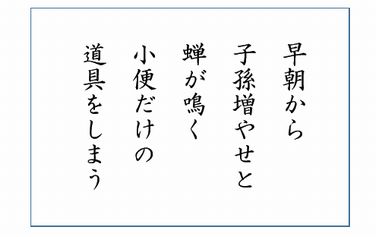 早朝から
子孫増やせと
蝉が鳴く
小便だけの
道具をしまう